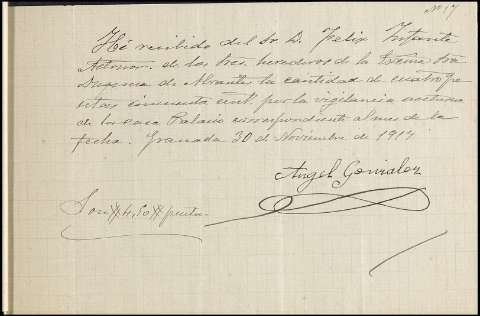 Nº 17
Hé recibido del Sr. D. Felix Infante
de los tres herederos de la Excma Sra
Duquesa de Abrantes la cantidad de cuatro pe-
setas cincuenta cents por la vigilancia nocturna
de la casa Palacio correspondiente al mes de la
fecha. Granada 30 de Noviembre de 1917
Angel Gonzalez
Son # 4,50 # pesetas.